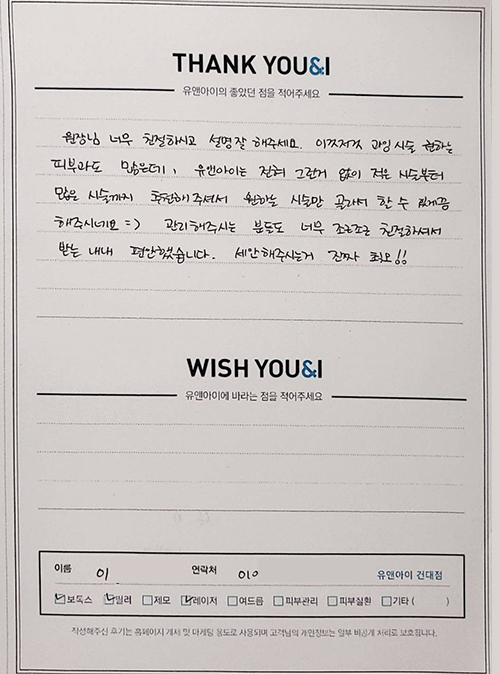 THANK YOU&I
유앤아이의 좋았던 점을 적어주세요
원장님 너무 친절하시고 설명잘 해주세요. 이것저것 과잉 시술 권하는
피부과도 많은데, 유앤아이는 전혀 그런거 없이 적은 시술부터
많은 시술까지 추천해주셔서 원하는 시술만 골라서 할 수 있게끔
해주시네요 =) 관리해주시는 분들도 너무 조근조근 친절하셔서
받는 내내 편안했습니다. 세안해주시는거 진짜 최고!!
WISH YOU&I
유앤아이에 바라는 점을 적어주세요
이름 이 연락처 010 유앤아이 건대점
보톡스 필러 제모 레이저 여드름 피부관리 피부질환 기타 ( )
작성해주신 후기는 홈페이지 게재 및 마케팅 용도로 사용되며 고객님의 개인정보는 일부 비공개 처리로 보호됩니다.